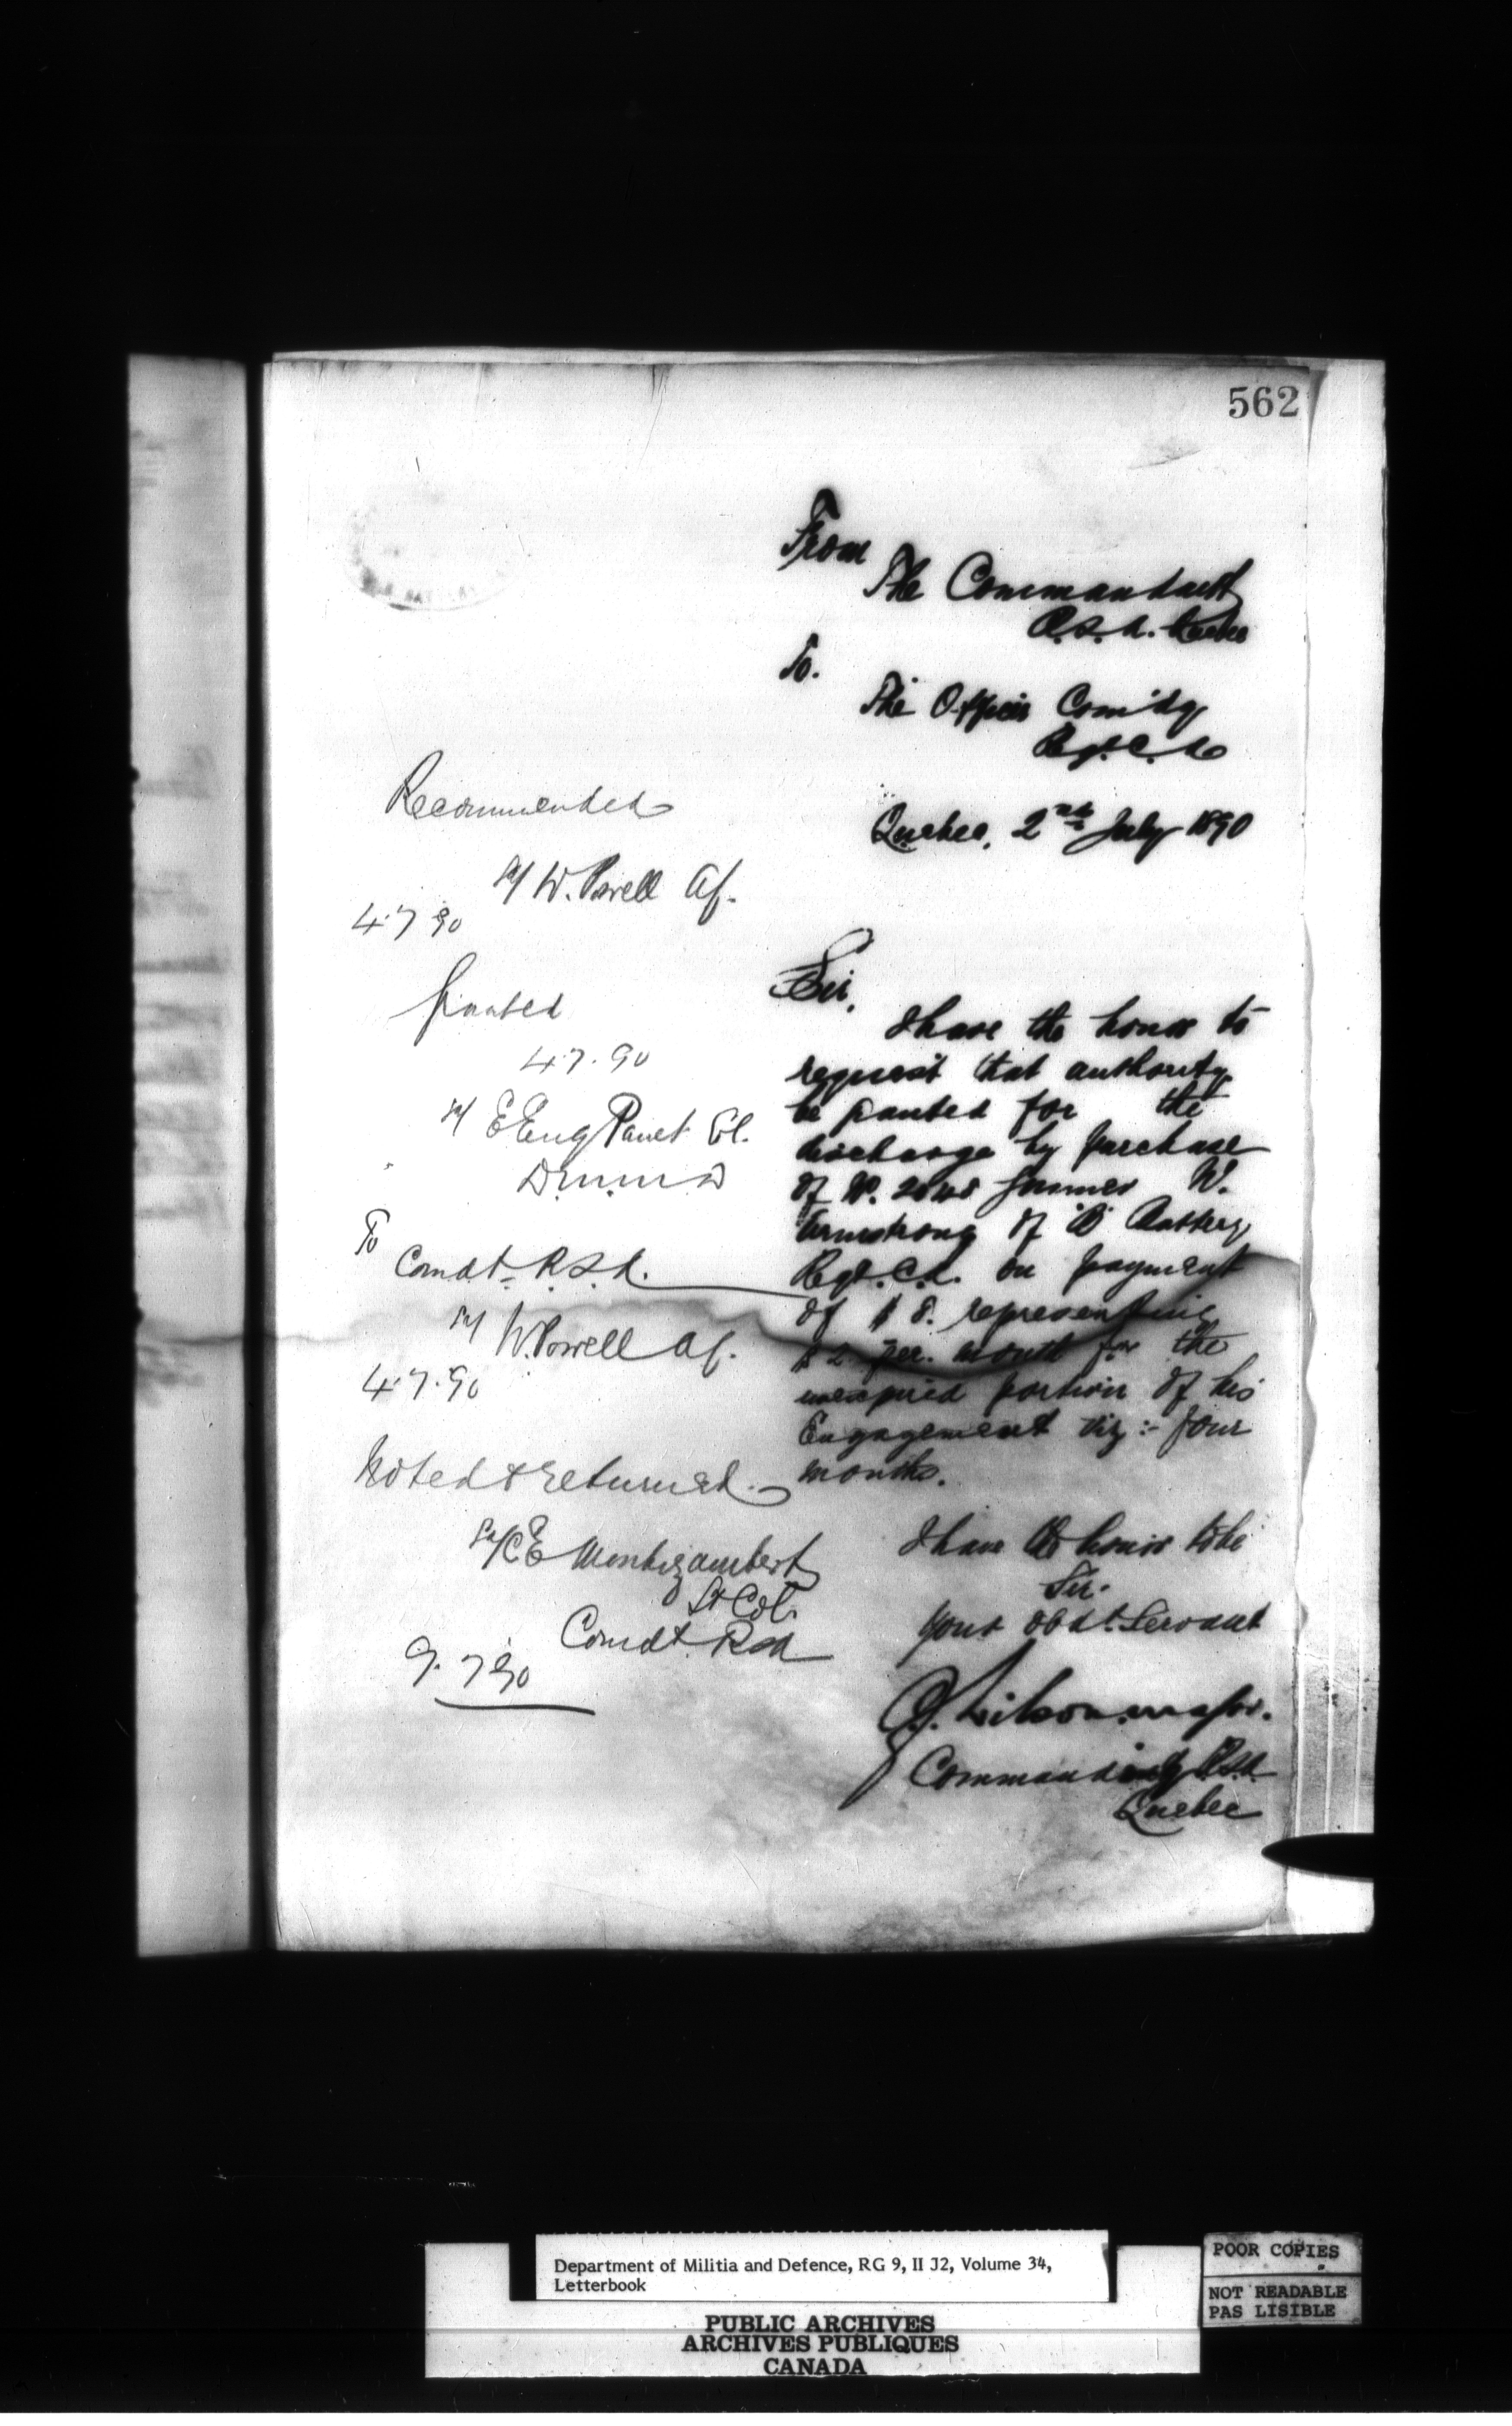 562
From
The Commandant
R.S.A. Quebec
To.
The Officer Comdg
Regt. C.A.
Quebec, 2nd July 1890
Sir,
I have the honor to
request that authority
be granted for the
discharge by purchase
of No. Gunner W.
Armstrong of "B" Battery
Regt. C.A. on payment
of $ 8. representing
$ 2 per. month for the
unexpired portion of his
Engagement viz :- four
months.
I have the honor to be
Sir.
Your obdt. Servant
Wilson. major.
Commanding R.S.A.
Quebec
Recommended
sd/ W. Powell Af.
4.7 90
Granted
4.7.90
sd/ E Eug Panet Cl.
D.M.M.D
To
Comdt. R.S.A.
sd/ W. Powell Af.
4.7.90
Noted & returned.
sd/ C E Montizambert
Lt Col.
Comdt. RSA
9. 7 90
Department of Militia and Defence, RG 9, II J2, Volume 34,
Letterbook
PUBLIC ARCHIVES
ARCHIVES PUBLIQUES
CANADA
POOR COPIES
NOT READABLE
PAS LISIBLE